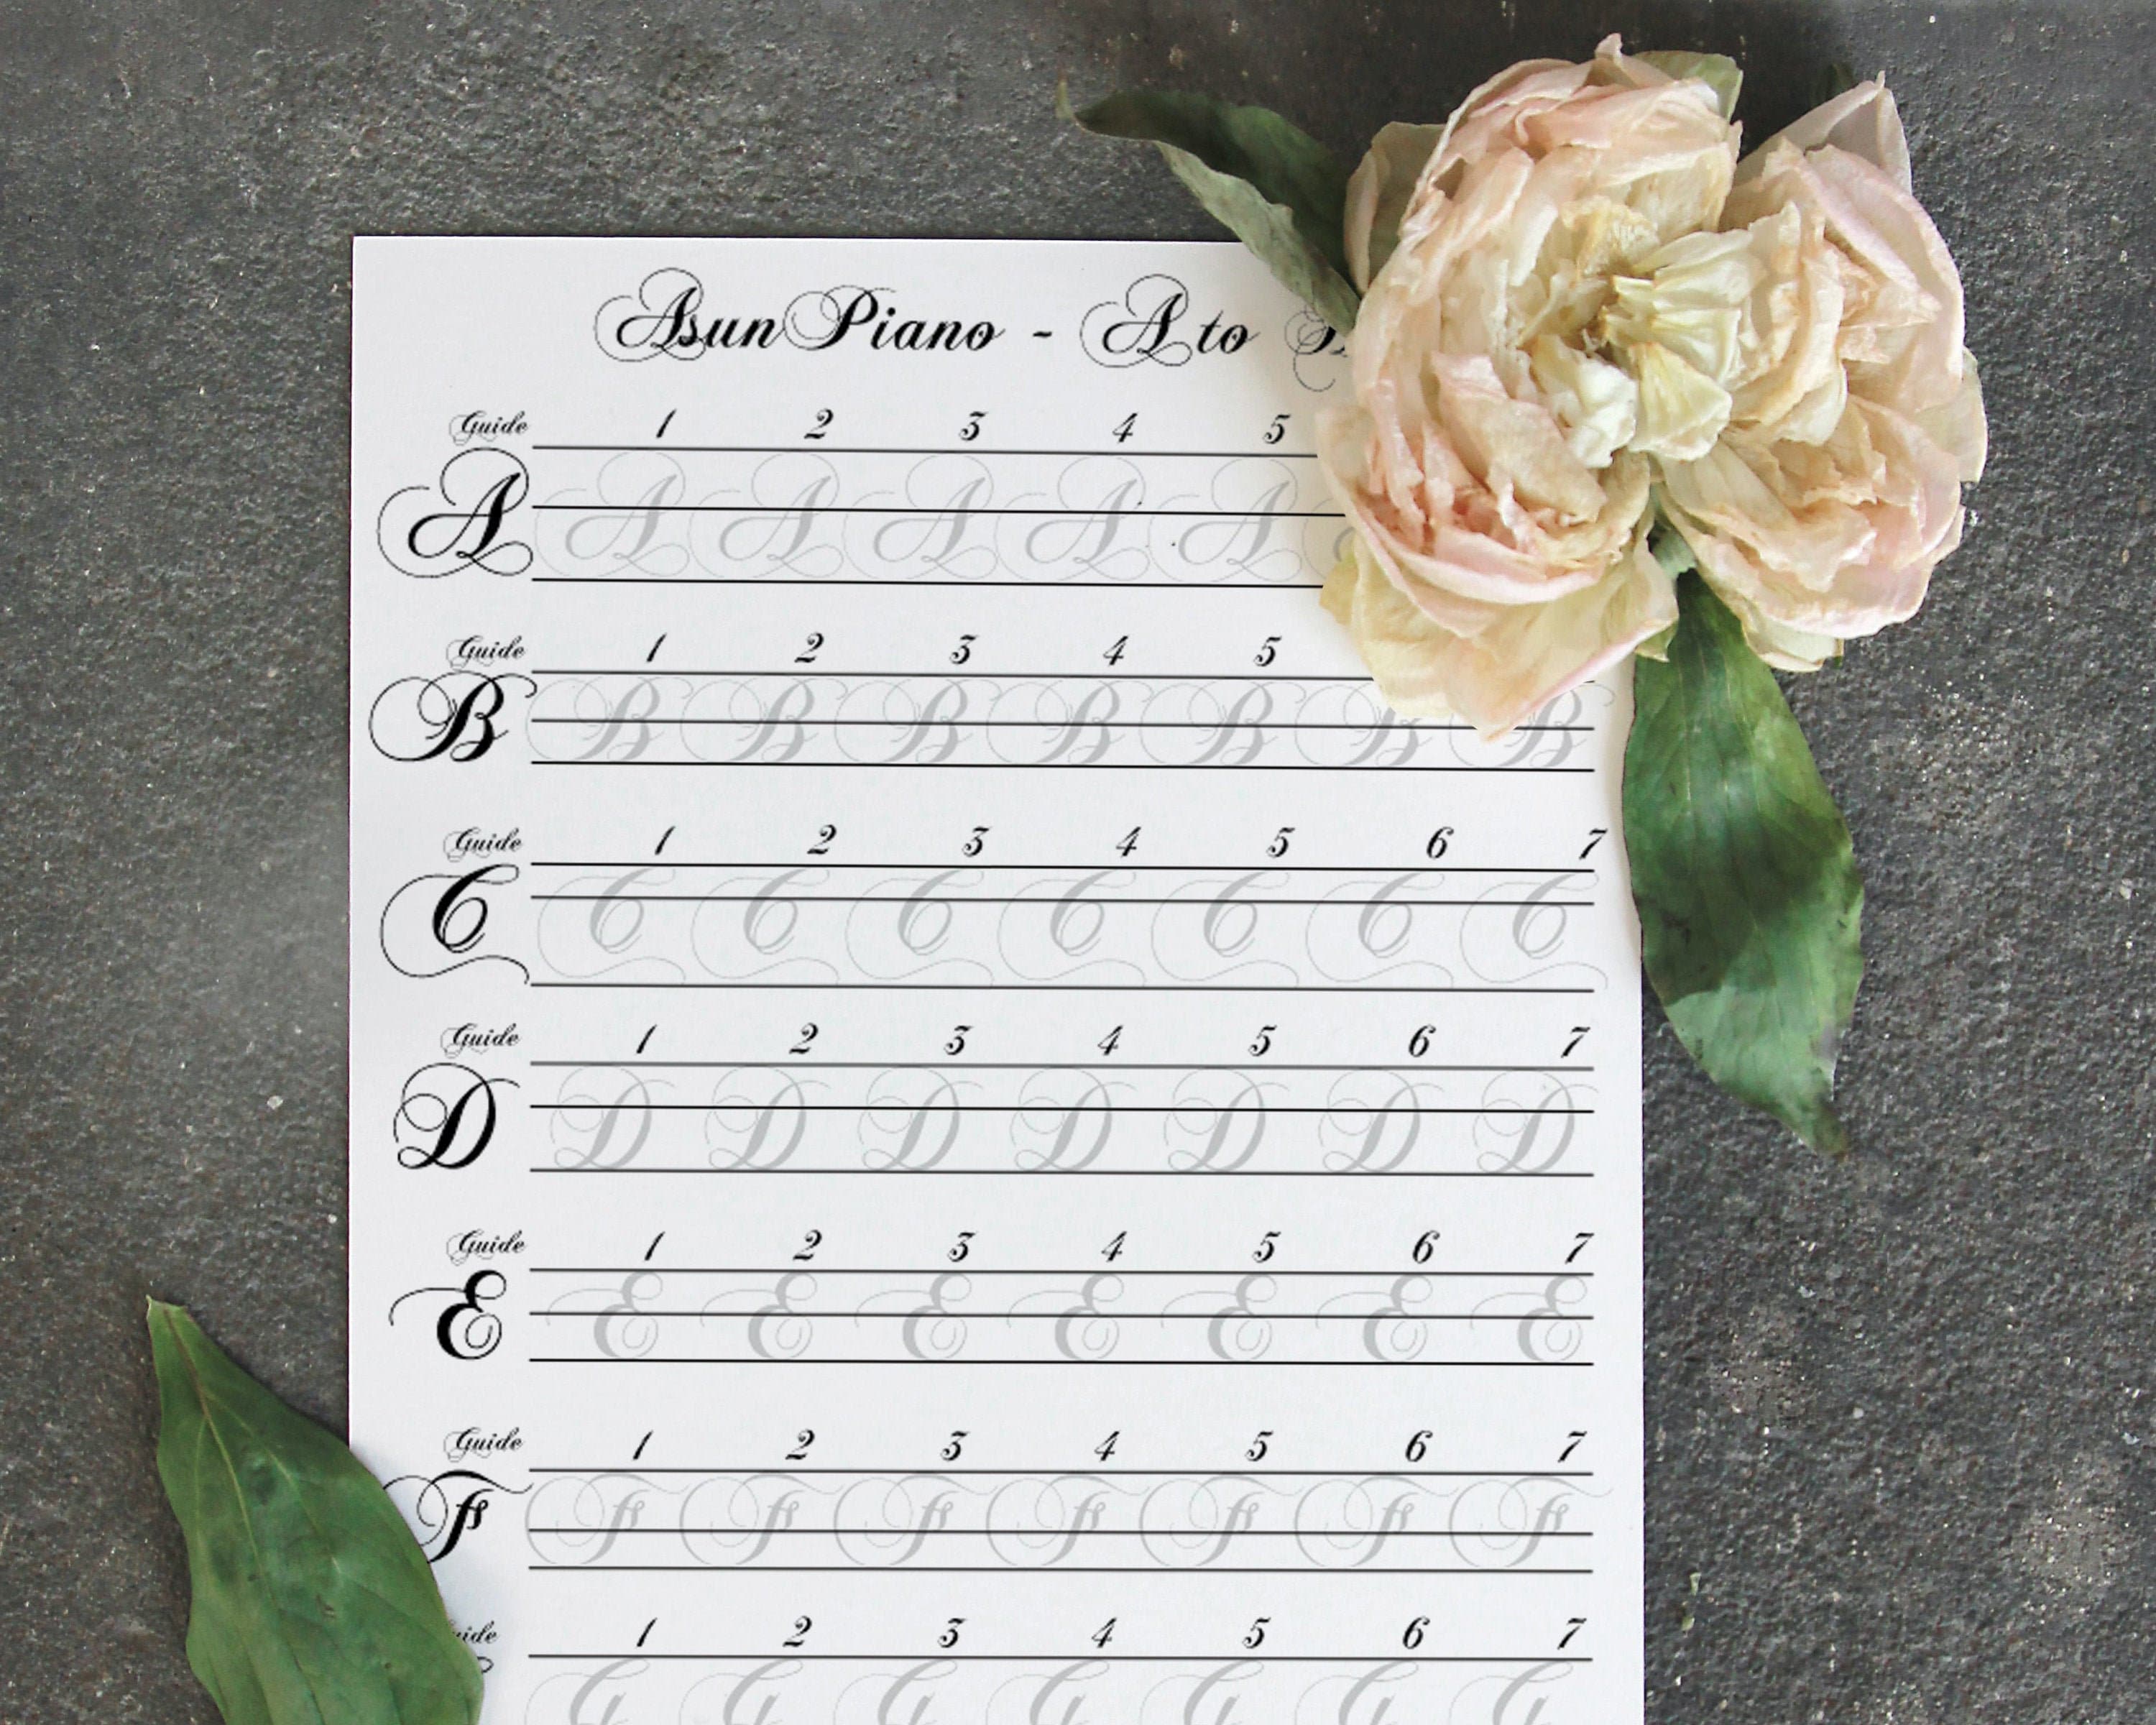 AsunPiano - A to
Guide 1 2 3 4 5
A A A A A A
Guide 1 2 3 4 5
B B B B B B B B
Guide 1 2 3 4 5 6 7
C C C C C C C C
Guide 1 2 3 4 5 6 7
D D D D D D D D
Guide 1 2 3 4 5 6 7
E E E E E E E E
Guide 1 2 3 4 5 6 7
F F F F F F F F
1 2 3 4 5 6 7
G G G G G G G